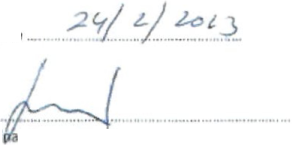 24/2/2013
pa